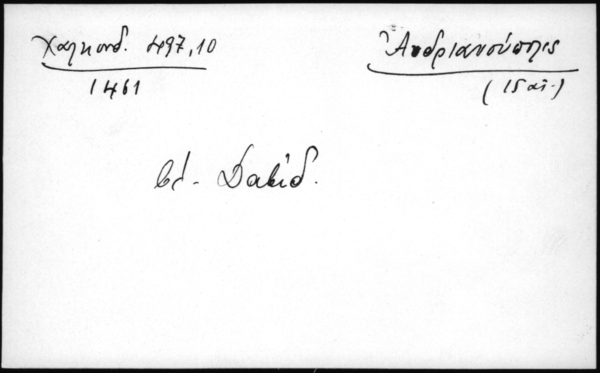 Χαλκονδ. 497,10
1461
Ἀνδριανούπολις
(15 αἰ.)
βλ. Δαβίδ.